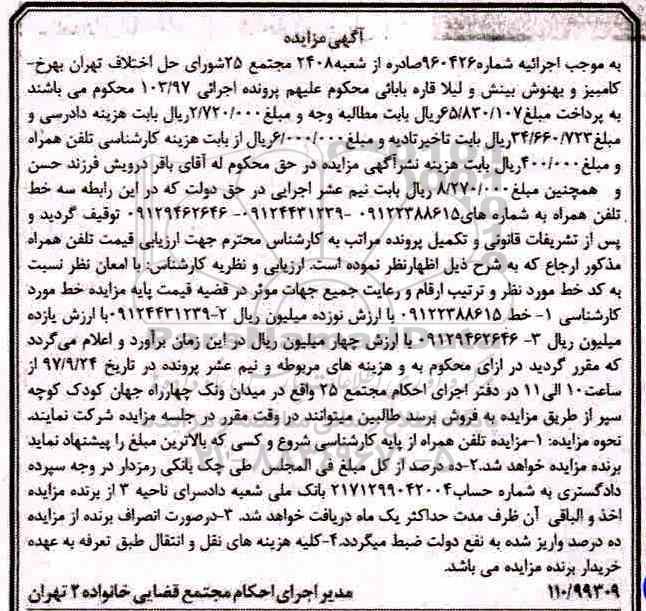 آگهی مزایده
به موجب اجرائیه شماره۹۶۰۴۲۶صادره از شعبه۲۴۰۸ مجتمع ۲۵شورای حل اختلاف تهران بهرخ-
کامبیز و بهنوش بینش و لیلا قاره بابائی محکوم علیهم پرونده اجرائی ۱۰۳/۹۷ محکوم می باشند
به پرداخت مبلغ۶۵/۸۳۰/۱۰۷ریال بابت مطالبه وجه و مبلغ۲/۷۲۰/۰۰۰ریال بابت هزینه دادرسی و
مبلغ۳۴/۶۶۰/۷۲۳ریال بابت تاخیرتادیه و مبلغ۶/۰۰۰/۰۰۰ریال از بابت هزینه کارشناسی تلفن همراه
و مبلغ۴۰۰/۰۰۰ریال بابت هزینه نشرآگهی مزایده در حق محکوم له آقای باقر درویش فرزند حسن
و همچنین مبلغ۸/۲۷۰/۰۰۰ ریال بابت نیم عشر اجرایی در حق دولت که در این رابطه سه خط
تلفن همراه به شماره های۰۹۱۲۲۳۸۸۶۱۵ -۰۹۱۲۴۴۳۱۲۳۹- ۰۹۱۲۹۴۶۲۶۴۶ توقیف گردید و
پس از تشریفات قانونی و تکمیل پرونده مراتب به کارشناس محترم جهت ارزیابی قیمت تلفن همراه
مذکور ارجاع که به شرح ذیل اظهارنظر نموده است. ارزیابی و نظریه کارشناس: با امعان نظر نسبت
به کد خط مورد نظر و ترتیب ارقام و رعایت جمیع جهات موثر در قضیه قیمت پایه مزایده خط مورد
کارشناسی ۱- خط ۰۹۱۲۲۳۸۸۶۱۵ با ارزش نوزده میلیون ریال ۲-۰۹۱۲۴۴۳۱۲۳۹با ارزش یازده
میلیون ریال ۳- ۰۹۱۲۹۴۶۲۶۴۶ با ارزش چهار میلیون ریال در این زمان برآورد و اعلام می‌گردد
که مقرر گردید در ازای محکوم به و هزینه های مربوطه و نیم عشر پرونده در تاریخ ۹۷/۹/۲۴ از
ساعت۱۰ الی۱۱ در دفتر اجرای احکام مجتمع ۲۵ واقع در میدان ونک چهارراه جهان کودک کوچه
سپر از طریق مزایده به فروش برسد طالبین میتوانند در وقت مقرر در جلسه مزایده شرکت نمایند.
نحوه مزایده: ۱-مزایده تلفن همراه از پایه کارشناسی شروع و کسی که بالاترین مبلغ را پیشنهاد نماید
برنده مزایده خواهد شد.۲-ده درصد از کل مبلغ فی المجلس طی چک بانکی رمزدار در وجه سپرده
دادگستری به شماره حساب۲۱۷۱۲۹۹۰۴۲۰۰۴ بانک ملی شعبه دادسرای ناحیه ۳ از برنده مزایده
اخذ و الباقی آن ظرف مدت حداکثر یک ماه دریافت خواهد شد. ۳-درصورت انصراف برنده از مزایده
ده درصد واریز شده به نفع دولت ضبط میگردد.۴-کلیه هزینه های نقل و انتقال طبق تعرفه به عهده
خریدار برنده مزایده می باشد.
۱۱۰/۹۹۳۰۹ مدیر اجرای احکام مجتمع قضایی خانواده ۲ تهران